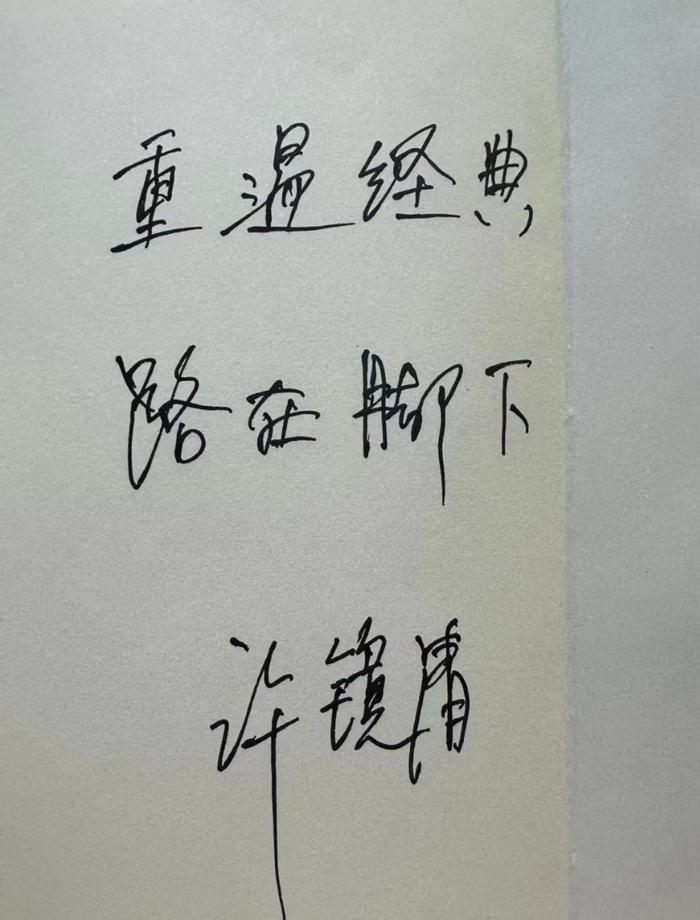 重温经典
路在脚下
许镜清